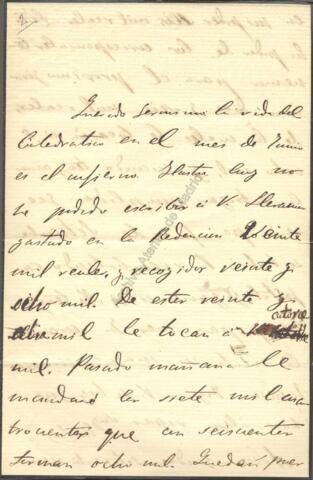 2
Querido Jeronimo: la vida del
Catedratico en el mes de Junio
es el infierno. Hasta hoy no
he podido escribir á V. Llevamos
gastado en la Redencion Veinte
mil reales, y recogidos veinte y
ocho mil. De estos veinte y
ocho mil le tocan á V. catorce
mil. Pasado mañana le
mandaré los siete mil cua
trocientos que con seiscientos
forman ocho mil. Quedan, pues
Archivo Ateneo de Madrid